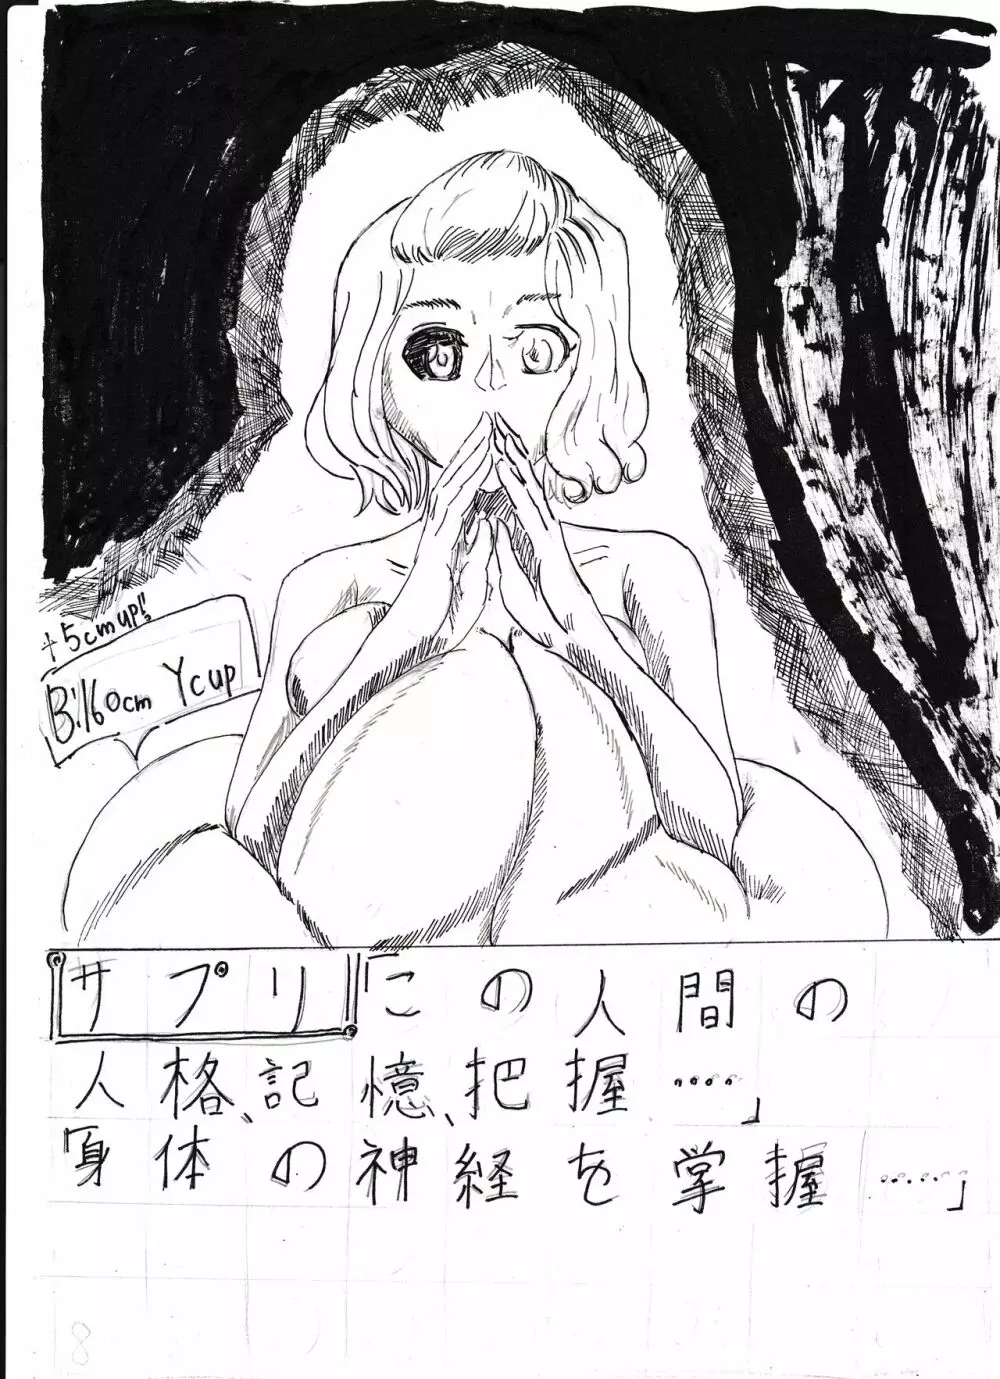 +5cmup!!
B:160cm Ycup
サプリ「この人間の
人格、記憶、把握……」
「身体の神経を掌握……」
8